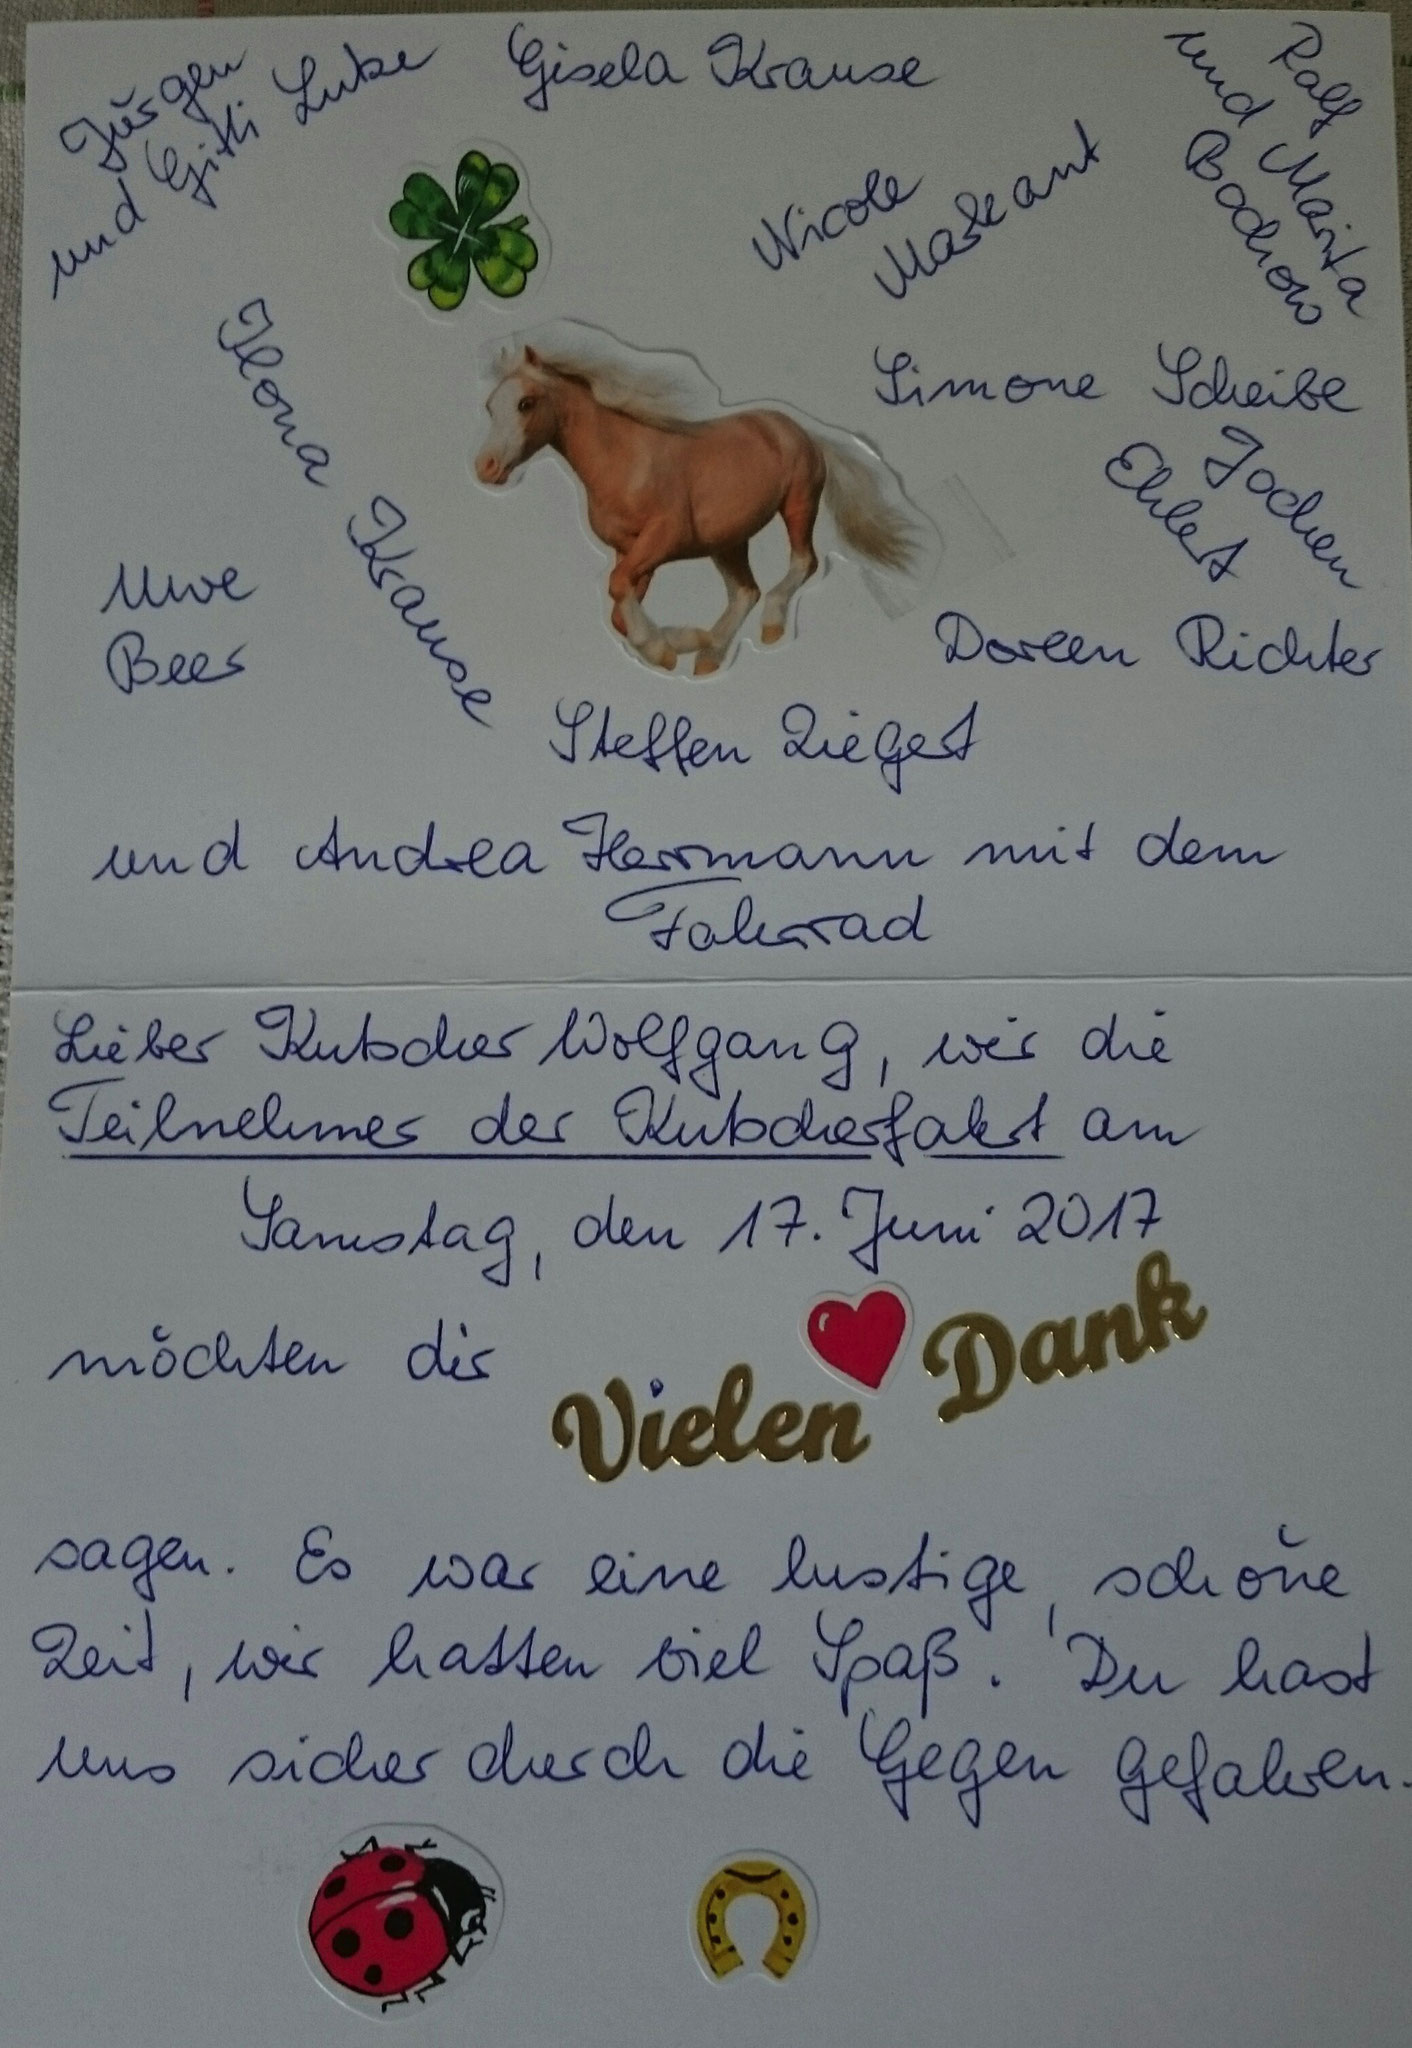 Jürgen
und Gitti Luke
Gisela Krause
Ralf
und Marita
Bochow
Nicole
Markant
Ilona Krause
Simone Scheibe
Jochen
Ehlert
Uwe
Beer
Doreen Richter
Steffen Ziegert
und Andrea Herrmann mit dem
Fahrrad
Lieber Kutscher Wolfgang, wir die
Teilnehmer der Kutscherfahrt am
Samstag, den 17. Juni 2017
möchten dir Vielen Dank
sagen. Es war eine lustige, schöne
Zeit, wir hatten viel Spaß. Du hast
uns sicher durch die Gegen gefahren.